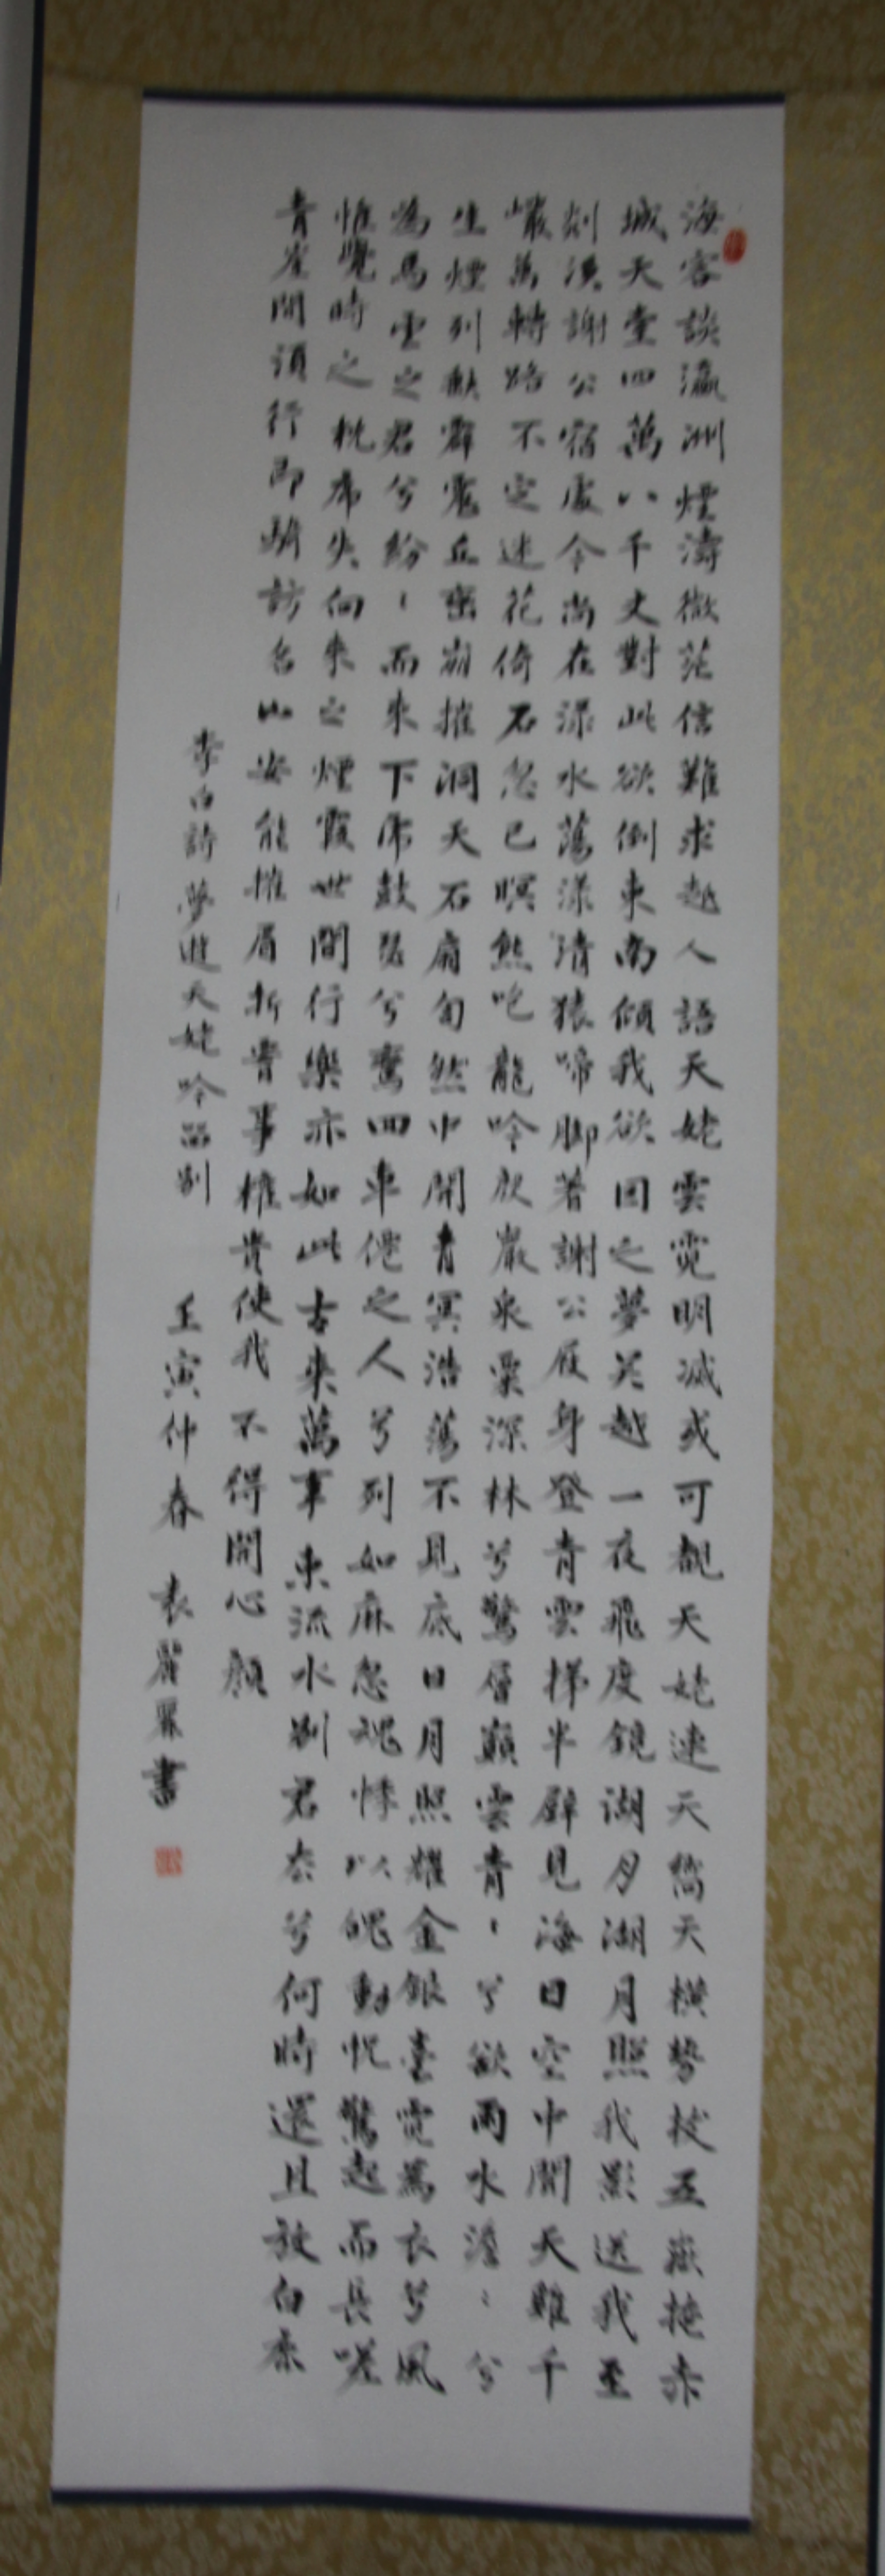 海客談瀛洲煙濤微茫信難求越人語天姥雲霓明滅或可覩天姥連天天橫勢拔五嶽掩赤
城天臺四萬八千丈對此欲倒東南傾我欲因之夢吳越一夜飛度鏡湖月湖月照我影送我至
剡溪謝公宿處今尚在淥水蕩漾清猿啼腳著謝公屐身登青雲梯半壁見海日空中聞天雞千
巖萬轉路不定迷花倚石忽已暝熊咆龍吟殷巖泉慄深林兮驚層巔雲青、兮欲雨水澹、兮
生煙列缺霹靂丘巒崩摧洞天石扇訇然中開青冥浩蕩不見底日月照耀金銀臺霓為衣兮風
為馬雲之君兮紛、而來下虎鼓瑟兮鸞回車僊之人兮列如麻忽魂悸以魄動怳驚起而長嗟
惟覺時之枕席失向來之煙霞世間行樂亦如此古來萬事東流水別君去兮何時還且放白鹿
青崖間須行即騎訪名山安能摧眉折腰事權貴使我不得開心顏
李白詩夢遊天姥吟留別 壬寅仲春 袁書